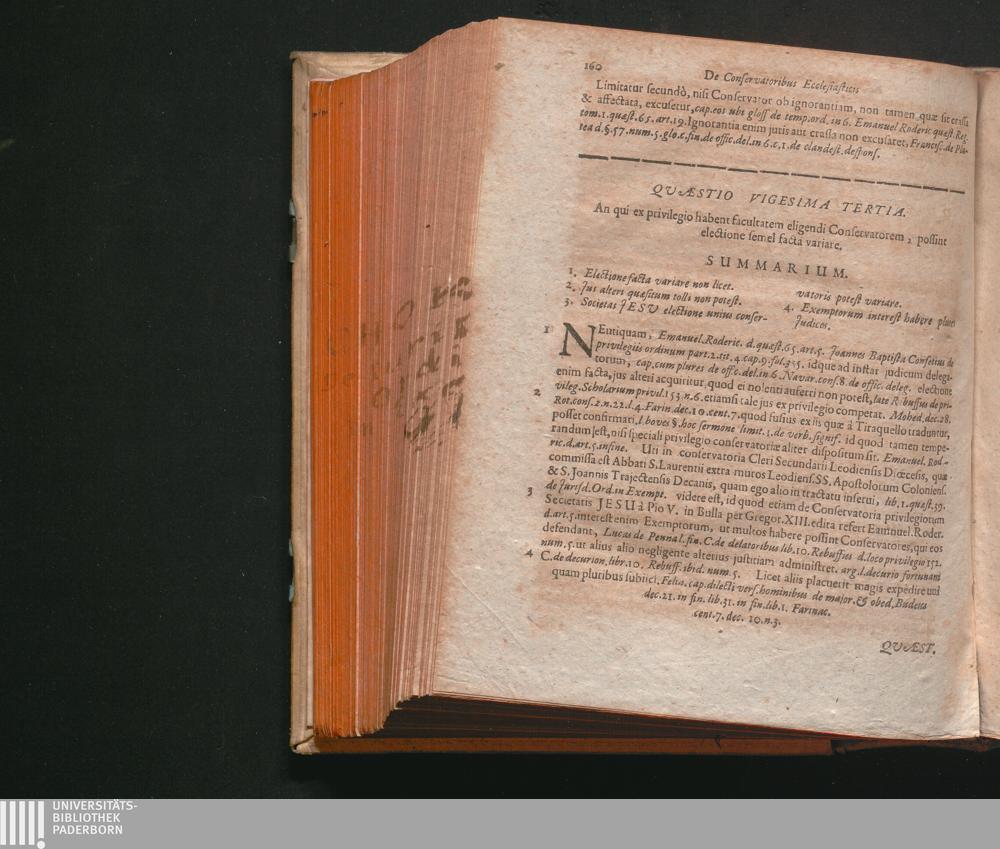 160
De Conservatoribus Ecclesiasticis
Limitatur secundò, nisi Conservator ob ignorantiam, non tamen quæ sit crassa
& affectata, excusetur, cap. eos ubi gloss de temp. ord. in 6. Emanuel Roderic quæst. Reg.
tom. 1. quæst. 65. art. 19. Ignorantia enim juris aut crassa non excusaret, Francisc. de Pla-
tea d. §. 57. num. 5. glo. c. fin. de offic. del. in 6. c. 1. de clandest. despons.
QUÆSTIO VIGESIMA TERTIA.
An qui ex privilegio habent facultatem eligendi Conservatorem, possint
electione semel facta variare.
SUMMARIUM.
1. Electione facta variare non licet.
2. Jus alteri quæsitum tolli non potest.
3. Societas JESU electione unius conser-
vatoris potest variare.
4. Exemptorum interest habere plures
Judices.
1 NEutiquam, Emanuel. Roderic. d. quæst. 65. art. 5. Joannes Baptista Confetius de
privilegiis ordinum part. 2. tit. 4. cap. 9. fol. 355. idque ad instar judicum delega-
torum, cap. cum plures de offic. del. in 6. Navar. cons. 8. de offic. deleg. electione
enim facta, jus alteri acquiritur, quod ei nolenti auferri non potest, late Rebuffus de pri-
2 vileg. Scholarium privil. 153. n. 6. etiamsi tale jus ex privilegio competat. Mohed. dec. 28.
Rot. cons. 2. n. 22. l. 4. Farin. dec. 10. cent. 7. quod fusius ex iis quæ à Tiraquello traduntur,
posset confirmari, l. boves §. hoc sermone limit. 1. de verb. signif. id quod tamen tempe-
randum est, nisi speciali privilegio conservatoriæ aliter dispositum sit. Emanuel. Rod-
ric. d. art. 5. in fine. Uti in conservatoria Cleri Secundarii Leodiensis Diœcesis, quæ
commissa est Abbati S. Laurentii extra muros Leodiens. SS. Apostolorum Coloniens.
& S. Joannis Trajectensis Decanis, quam ego alio in tractatu inserui, lib. 1. quæst. 39.
3 de Jurisd. Ord. in Exempt. videre est, id quod etiam de Conservatoria privilegiorum
Societatis JESU à Pio V. in Bulla per Gregor. XIII. edita refert Eamnuel. Roder.
d. art. 5. interest enim Exemptorum, ut multos habere possint Conservatores, qui eos
defendant, Lucas de Penna l. fin. C. de delatoribus lib. 10. Rebuffus d. loco privilegio 152.
num. 5. ut alius alio negligente alterius justitiam administret. arg. l. decurio fortunam
4 C. de decurion. libr. 10. Rebuff. ibid. num. 5. Licet aliis placuerit magis expedire uni
quam pluribus subjici, Felin. cap. dilecti vers. hominibus de major. & obed. Budæus
dec. 21. in fin. lib. 31. in fin. lib. 1. Farinac.
cent. 7. dec. 10. n. 3.
QUÆST.
UNIVERSITÄTS-
BIBLIOTHEK
PADERBORN